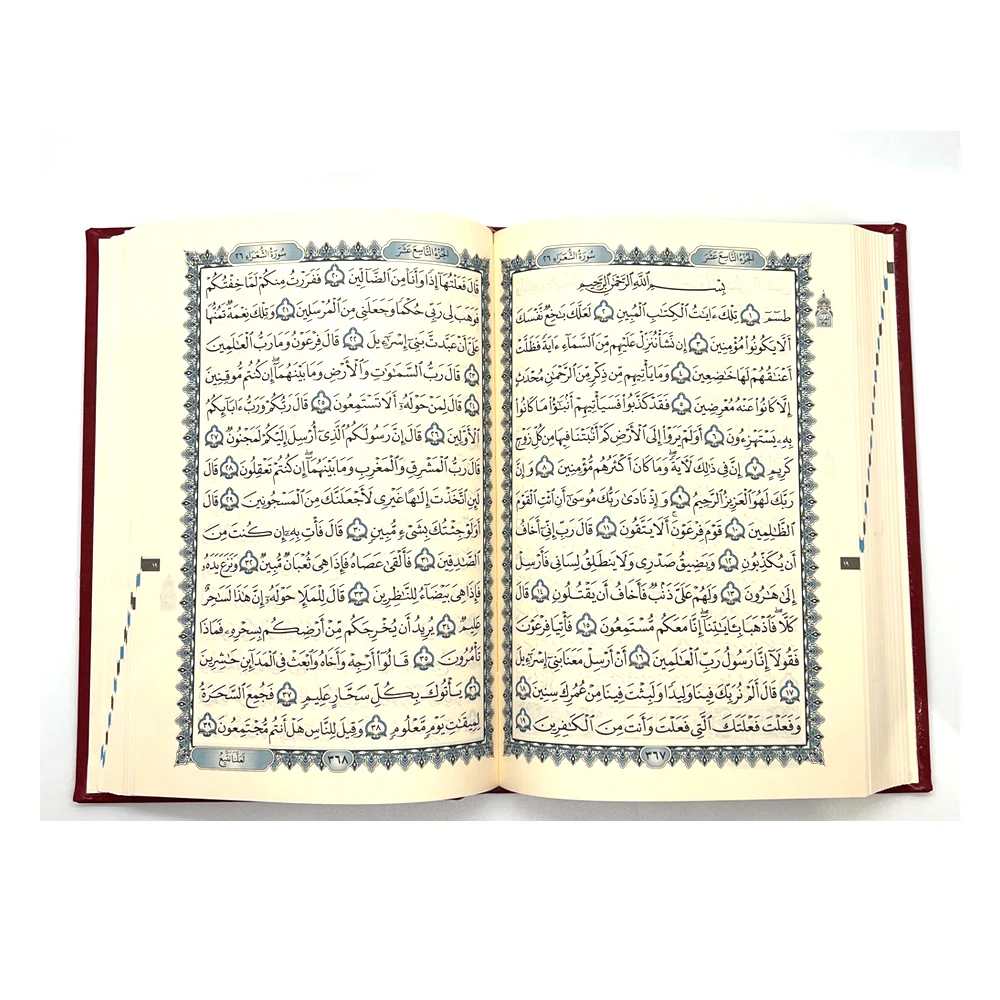 الجزء التاسع عشر
سورة الشعراء ٢٦
بِسْمِ اللَّهِ الرَّحْمَٰنِ الرَّحِيمِ
طسٓمٓ ١ تِلْكَ ءَايَٰتُ الْكِتَٰبِ الْمُبِينِ ٢ لَعَلَّكَ بَٰخِعٌ نَّفْسَكَ
أَلَّا يَكُونُوا۟ مُؤْمِنِينَ ٣ إِن نَّشَأْ نُنَزِّلْ عَلَيْهِم مِّنَ السَّمَآءِ ءَايَةً فَظَلَّتْ
أَعْنَٰقُهُمْ لَهَا خَٰضِعِينَ ٤ وَمَا يَأْتِيهِم مِّن ذِكْرٍ مِّنَ الرَّحْمَٰنِ مُحْدَثٍ
إِلَّا كَانُوا۟ عَنْهُ مُعْرِضِينَ ٥ فَقَدْ كَذَّبُوا۟ فَسَيَأْتِيهِمْ أَنۢبَٰٓؤُا۟ مَا كَانُوا۟
بِهِۦ يَسْتَهْزِءُونَ ٦ أَوَلَمْ يَرَوْا۟ إِلَى الْأَرْضِ كَمْ أَنۢبَتْنَا فِيهَا مِن كُلِّ زَوْجٍ
كَرِيمٍ ٧ إِنَّ فِى ذَٰلِكَ لَءَايَةً ۖ وَمَا كَانَ أَكْثَرُهُم مُّؤْمِنِينَ ٨ وَإِنَّ
رَبَّكَ لَهُوَ الْعَزِيزُ الرَّحِيمُ ٩ وَإِذْ نَادَىٰ رَبُّكَ مُوسَىٰٓ أَنِ ائْتِ الْقَوْمَ
الظَّٰلِمِينَ ١٠ قَوْمَ فِرْعَوْنَ ۚ أَلَا يَتَّقُونَ ١١ قَالَ رَبِّ إِنِّىٓ أَخَافُ
أَن يُكَذِّبُونِ ١٢ وَيَضِيقُ صَدْرِى وَلَا يَنطَلِقُ لِسَانِى فَأَرْسِلْ
إِلَىٰ هَٰرُونَ ١٣ وَلَهُمْ عَلَىَّ ذَنۢبٌ فَأَخَافُ أَن يَقْتُلُونِ ١٤ قَالَ
كَلَّا ۖ فَاذْهَبَا بِـَٔايَٰتِنَآ ۖ إِنَّا مَعَكُم مُّسْتَمِعُونَ ١٥ فَأْتِيَا فِرْعَوْنَ
فَقُولَآ إِنَّا رَسُولُ رَبِّ الْعَٰلَمِينَ ١٦ أَنْ أَرْسِلْ مَعَنَا بَنِىٓ إِسْرَٰٓءِيلَ
١٧ قَالَ أَلَمْ نُرَبِّكَ فِينَا وَلِيدًا وَلَبِثْتَ فِينَا مِنْ عُمُرِكَ سِنِينَ ١٨
وَفَعَلْتَ فَعْلَتَكَ الَّتِى فَعَلْتَ وَأَنتَ مِنَ الْكَٰفِرِينَ ١٩
٣٦٧
١٩
الجزء التاسع عشر
سورة الشعراء ٢٦
قَالَ فَعَلْتُهَآ إِذًا وَأَنَا۠ مِنَ الضَّآلِّينَ ٢٠ فَفَرَرْتُ مِنكُمْ لَمَّا خِفْتُكُمْ
فَوَهَبَ لِى رَبِّى حُكْمًا وَجَعَلَنِى مِنَ الْمُرْسَلِينَ ٢١ وَتِلْكَ نِعْمَةٌ تَمُنُّهَا
عَلَىَّ أَنْ عَبَّدتَّ بَنِىٓ إِسْرَٰٓءِيلَ ٢٢ قَالَ فِرْعَوْنُ وَمَا رَبُّ الْعَٰلَمِينَ
٢٣ قَالَ رَبُّ السَّمَٰوَٰتِ وَالْأَرْضِ وَمَا بَيْنَهُمَآ ۖ إِن كُنتُم مُّوقِنِينَ
٢٤ قَالَ لِمَنْ حَوْلَهُۥٓ أَلَا تَسْتَمِعُونَ ٢٥ قَالَ رَبُّكُمْ وَرَبُّ ءَابَآئِكُمُ
الْأَوَّلِينَ ٢٦ قَالَ إِنَّ رَسُولَكُمُ الَّذِىٓ أُرْسِلَ إِلَيْكُمْ لَمَجْنُونٌ ٢٧
قَالَ رَبُّ الْمَشْرِقِ وَالْمَغْرِبِ وَمَا بَيْنَهُمَآ ۖ إِن كُنتُمْ تَعْقِلُونَ ٢٨ قَالَ
لَئِنِ اتَّخَذْتَ إِلَٰهًا غَيْرِى لَأَجْعَلَنَّكَ مِنَ الْمَسْجُونِينَ ٢٩ قَالَ
أَوَلَوْ جِئْتُكَ بِشَىْءٍ مُّبِينٍ ٣٠ قَالَ فَأْتِ بِهِۦٓ إِن كُنتَ مِنَ
الصَّٰدِقِينَ ٣١ فَأَلْقَىٰ عَصَاهُ فَإِذَا هِىَ ثُعْبَانٌ مُّبِينٌ ٣٢ وَنَزَعَ يَدَهُۥ
فَإِذَا هِىَ بَيْضَآءُ لِلنَّٰظِرِينَ ٣٣ قَالَ لِلْمَلَإِ حَوْلَهُۥٓ إِنَّ هَٰذَا لَسَٰحِرٌ
عَلِيمٌ ٣٤ يُرِيدُ أَن يُخْرِجَكُم مِّنْ أَرْضِكُم بِسِحْرِهِۦ فَمَاذَا
تَأْمُرُونَ ٣٥ قَالُوٓا۟ أَرْجِهْ وَأَخَاهُ وَابْعَثْ فِى الْمَدَآئِنِ حَٰشِرِينَ
٣٦ يَأْتُوكَ بِكُلِّ سَحَّارٍ عَلِيمٍ ٣٧ فَجُمِعَ السَّحَرَةُ
لِمِيقَٰتِ يَوْمٍ مَّعْلُومٍ ٣٨ وَقِيلَ لِلنَّاسِ هَلْ أَنتُم مُّجْتَمِعُونَ ٣٩
٣٦٨
لَعَلَّنَا نَتَّبِعُ
١٩